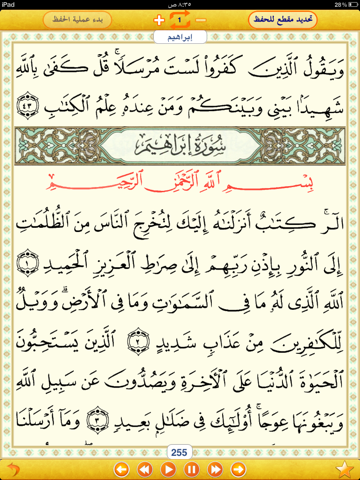 iPad ٨:٣٥ ص 28 %
بدء عملية الحفظ + 1 − تحديد مقطع للحفظ
إبراهيم
وَيَقُولُ ٱلَّذِينَ كَفَرُوا۟ لَسْتَ مُرْسَلًا ۚ قُلْ كَفَىٰ بِٱللَّهِ
شَهِيدًۢا بَيْنِى وَبَيْنَكُمْ وَمَنْ عِندَهُۥ عِلْمُ ٱلْكِتَٰبِ ٤٣
سُورَةُ إِبْرَاهِيم
بِسْمِ ٱللَّهِ ٱلرَّحْمَٰنِ ٱلرَّحِيمِ
الٓر ۚ كِتَٰبٌ أَنزَلْنَٰهُ إِلَيْكَ لِتُخْرِجَ ٱلنَّاسَ مِنَ ٱلظُّلُمَٰتِ
إِلَى ٱلنُّورِ بِإِذْنِ رَبِّهِمْ إِلَىٰ صِرَٰطِ ٱلْعَزِيزِ ٱلْحَمِيدِ ١
ٱللَّهِ ٱلَّذِى لَهُۥ مَا فِى ٱلسَّمَٰوَٰتِ وَمَا فِى ٱلْأَرْضِ ۗ وَوَيْلٌ
لِّلْكَٰفِرِينَ مِنْ عَذَابٍ شَدِيدٍ ٢ ٱلَّذِينَ يَسْتَحِبُّونَ
ٱلْحَيَوٰةَ ٱلدُّنْيَا عَلَى ٱلْءَاخِرَةِ وَيَصُدُّونَ عَن سَبِيلِ ٱللَّهِ
وَيَبْغُونَهَا عِوَجًا ۚ أُو۟لَٰٓئِكَ فِى ضَلَٰلٍۭ بَعِيدٍ ٣ وَمَآ أَرْسَلْنَا
255